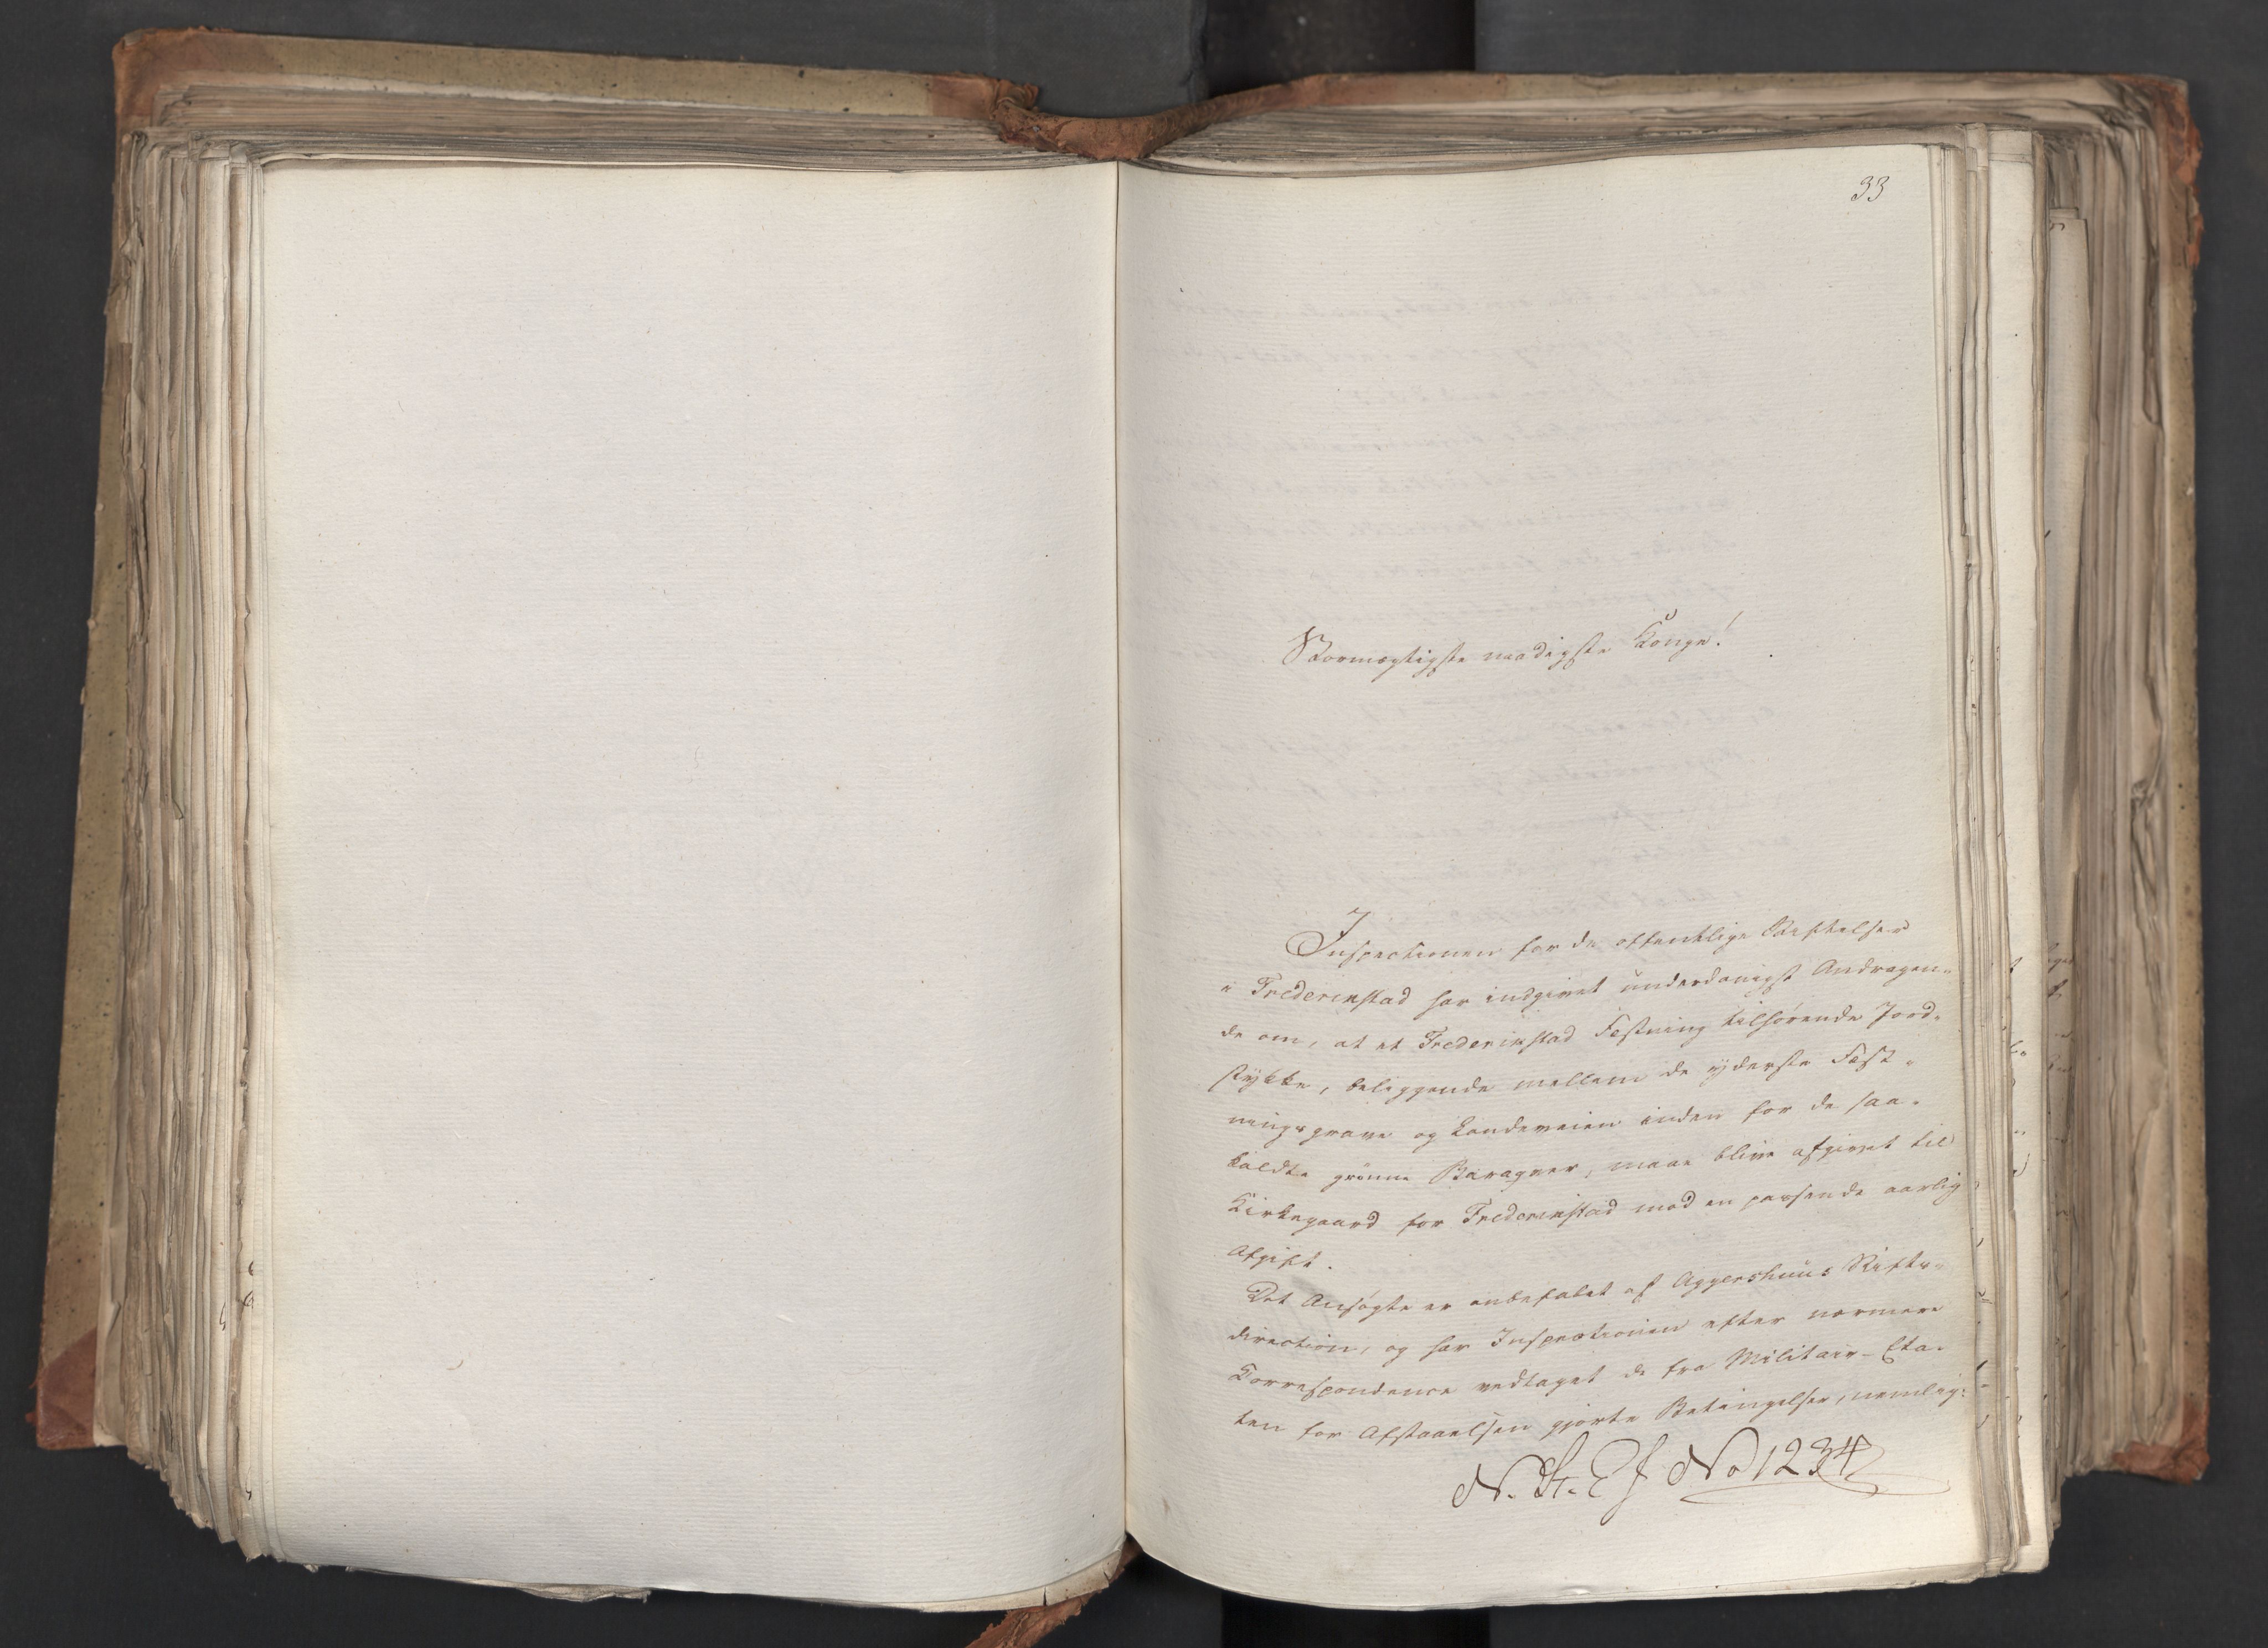 33
Stormægtigste naadigste Konge!
Inspectionen for de offentlige Stiftelser
i Frederikstad har indgivet underdanigst Andragen-
de om, at et Frederikstad Fæstning tilhørende Jord-
stykke, beliggende mellem de yderste Fæst-
ningsgrave og Landeveien inden for de saa-
kaldte grønne Baraquer, maae blive afgivet til
Kirkegaard for Frederikstad mod en passende aarlig
Afgift.
Det Ansøgte er anbefalet af Aggershuus Stifts-
direction, og har Inspectionen efter nærmere
Correspondence vedtaget de fra Militair-Eta-
ten for Afstaaelsen gjorte Betingelser, nemlig:
No 1234